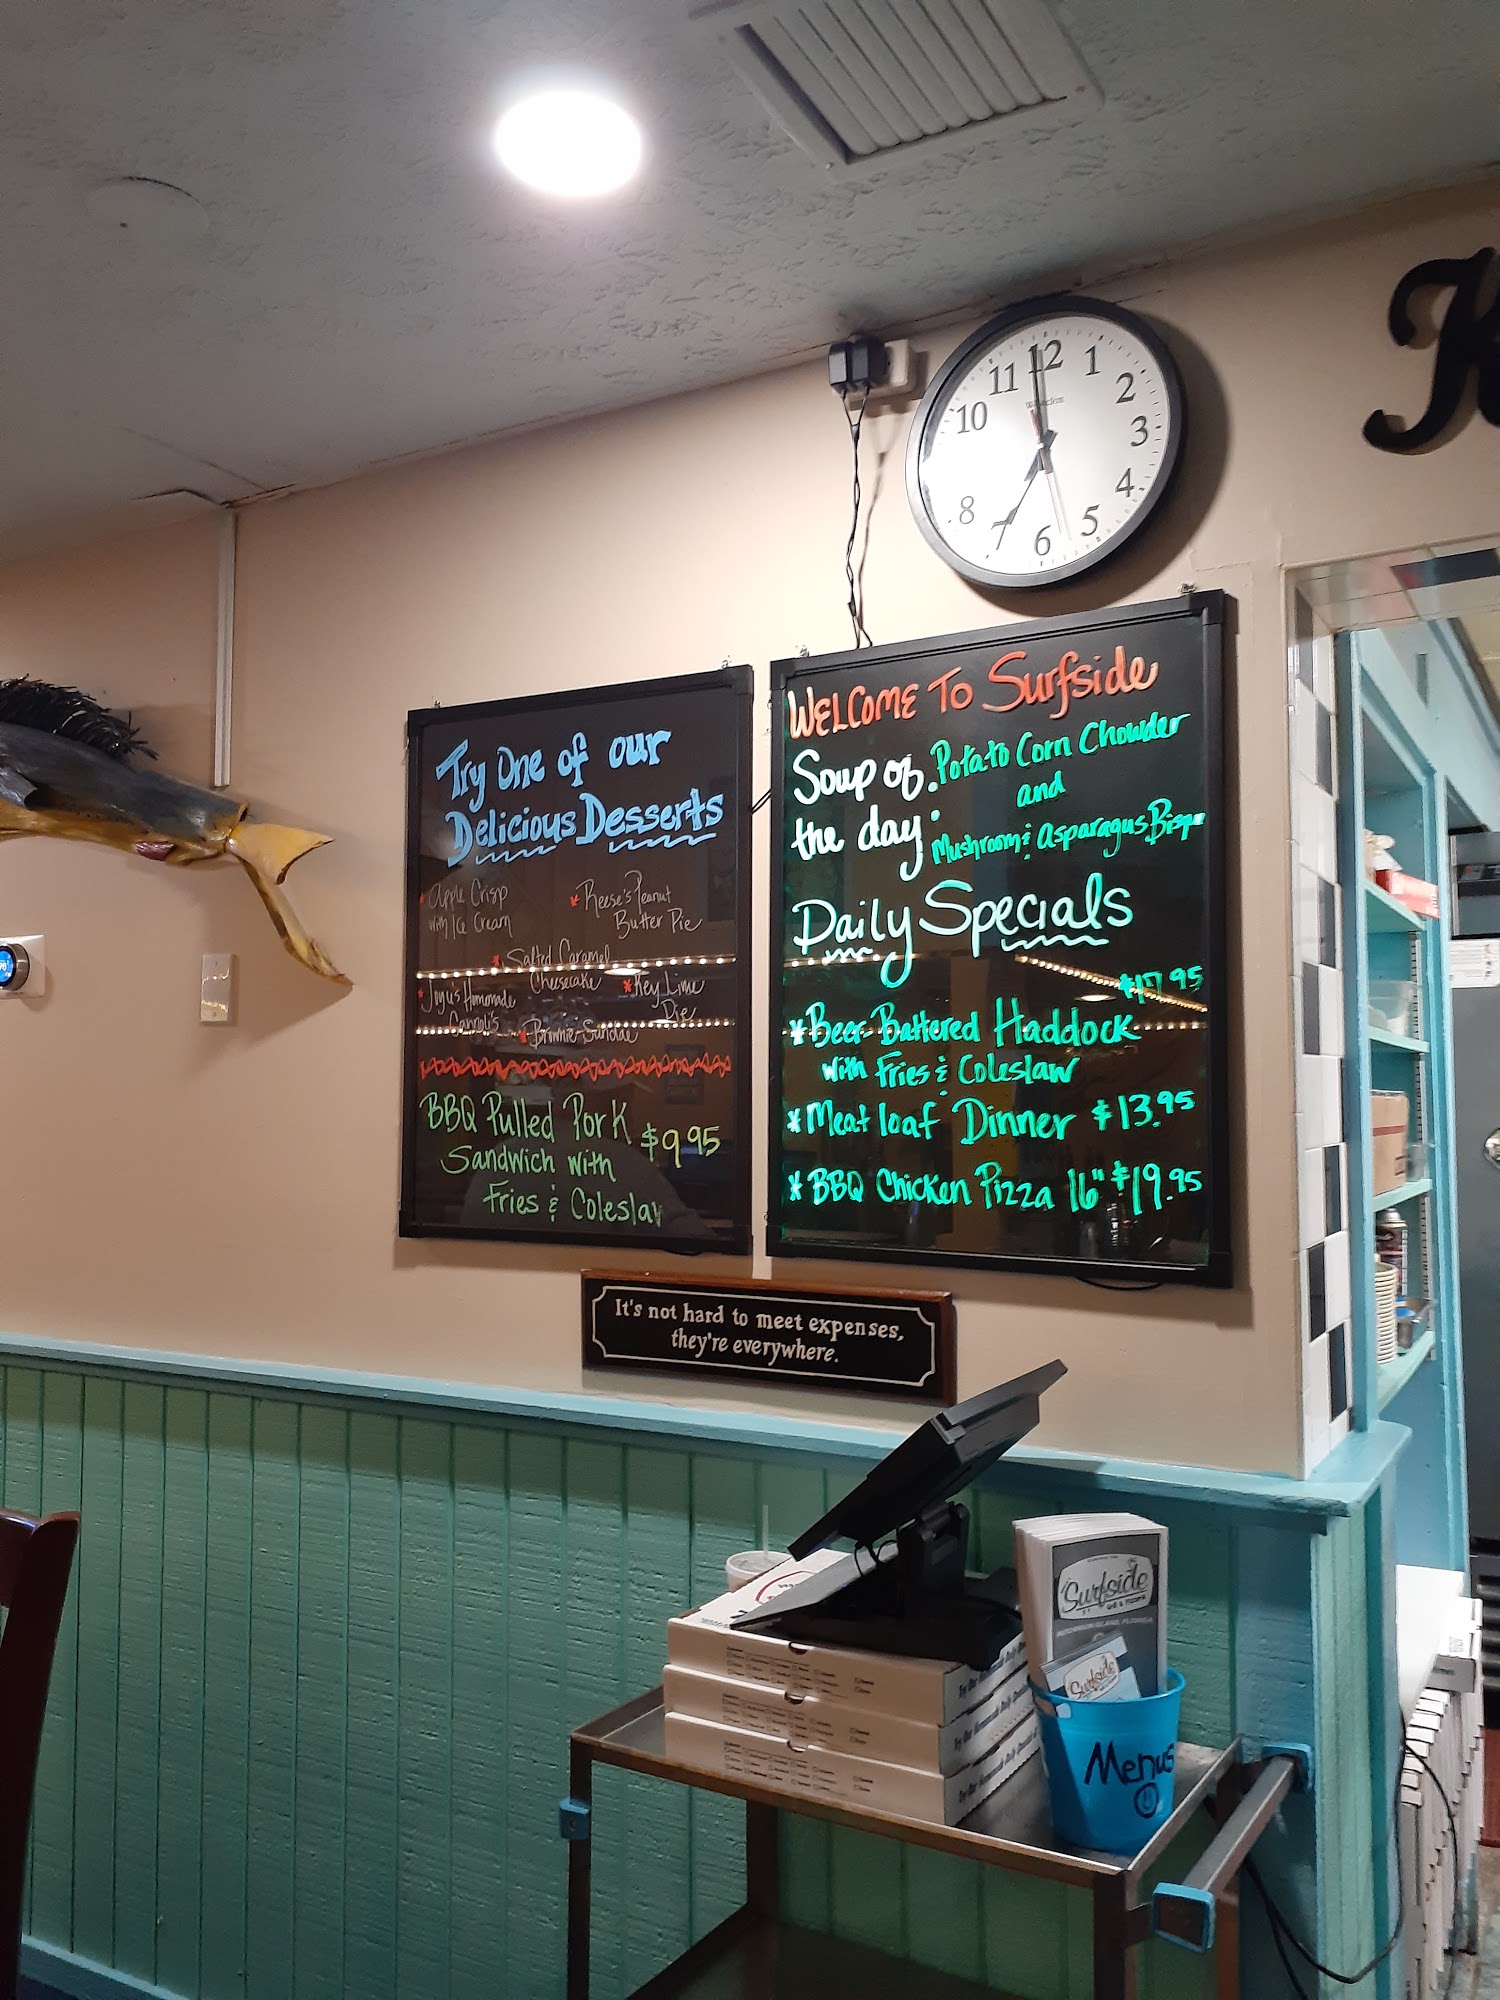 12
1
2
3
4
5
6
7
8
10
11
K
Try One of our
Delicious Desserts
* Apple Crisp
with Ice Cream
* Reese's Peanut
Butter Pie
* Salted Caramel
Cheesecake
* Key Lime
Pie
* Joy's Homemade
* Brownie Sundae
BBQ Pulled Pork
Sandwich with $9.95
Fries & Coleslaw
WELCOME TO Surfside
Soup of
the day:
Potato Corn Chowder
and
Mushroom & Asparagus Bisque
Daily Specials
$17.95
* Beer-Battered Haddock
with Fries & Coleslaw
* Meat loaf Dinner $13.95
* BBQ Chicken Pizza 16" $19.95
It's not hard to meet expenses,
they're everywhere.
Surfside
Surfside
Menus